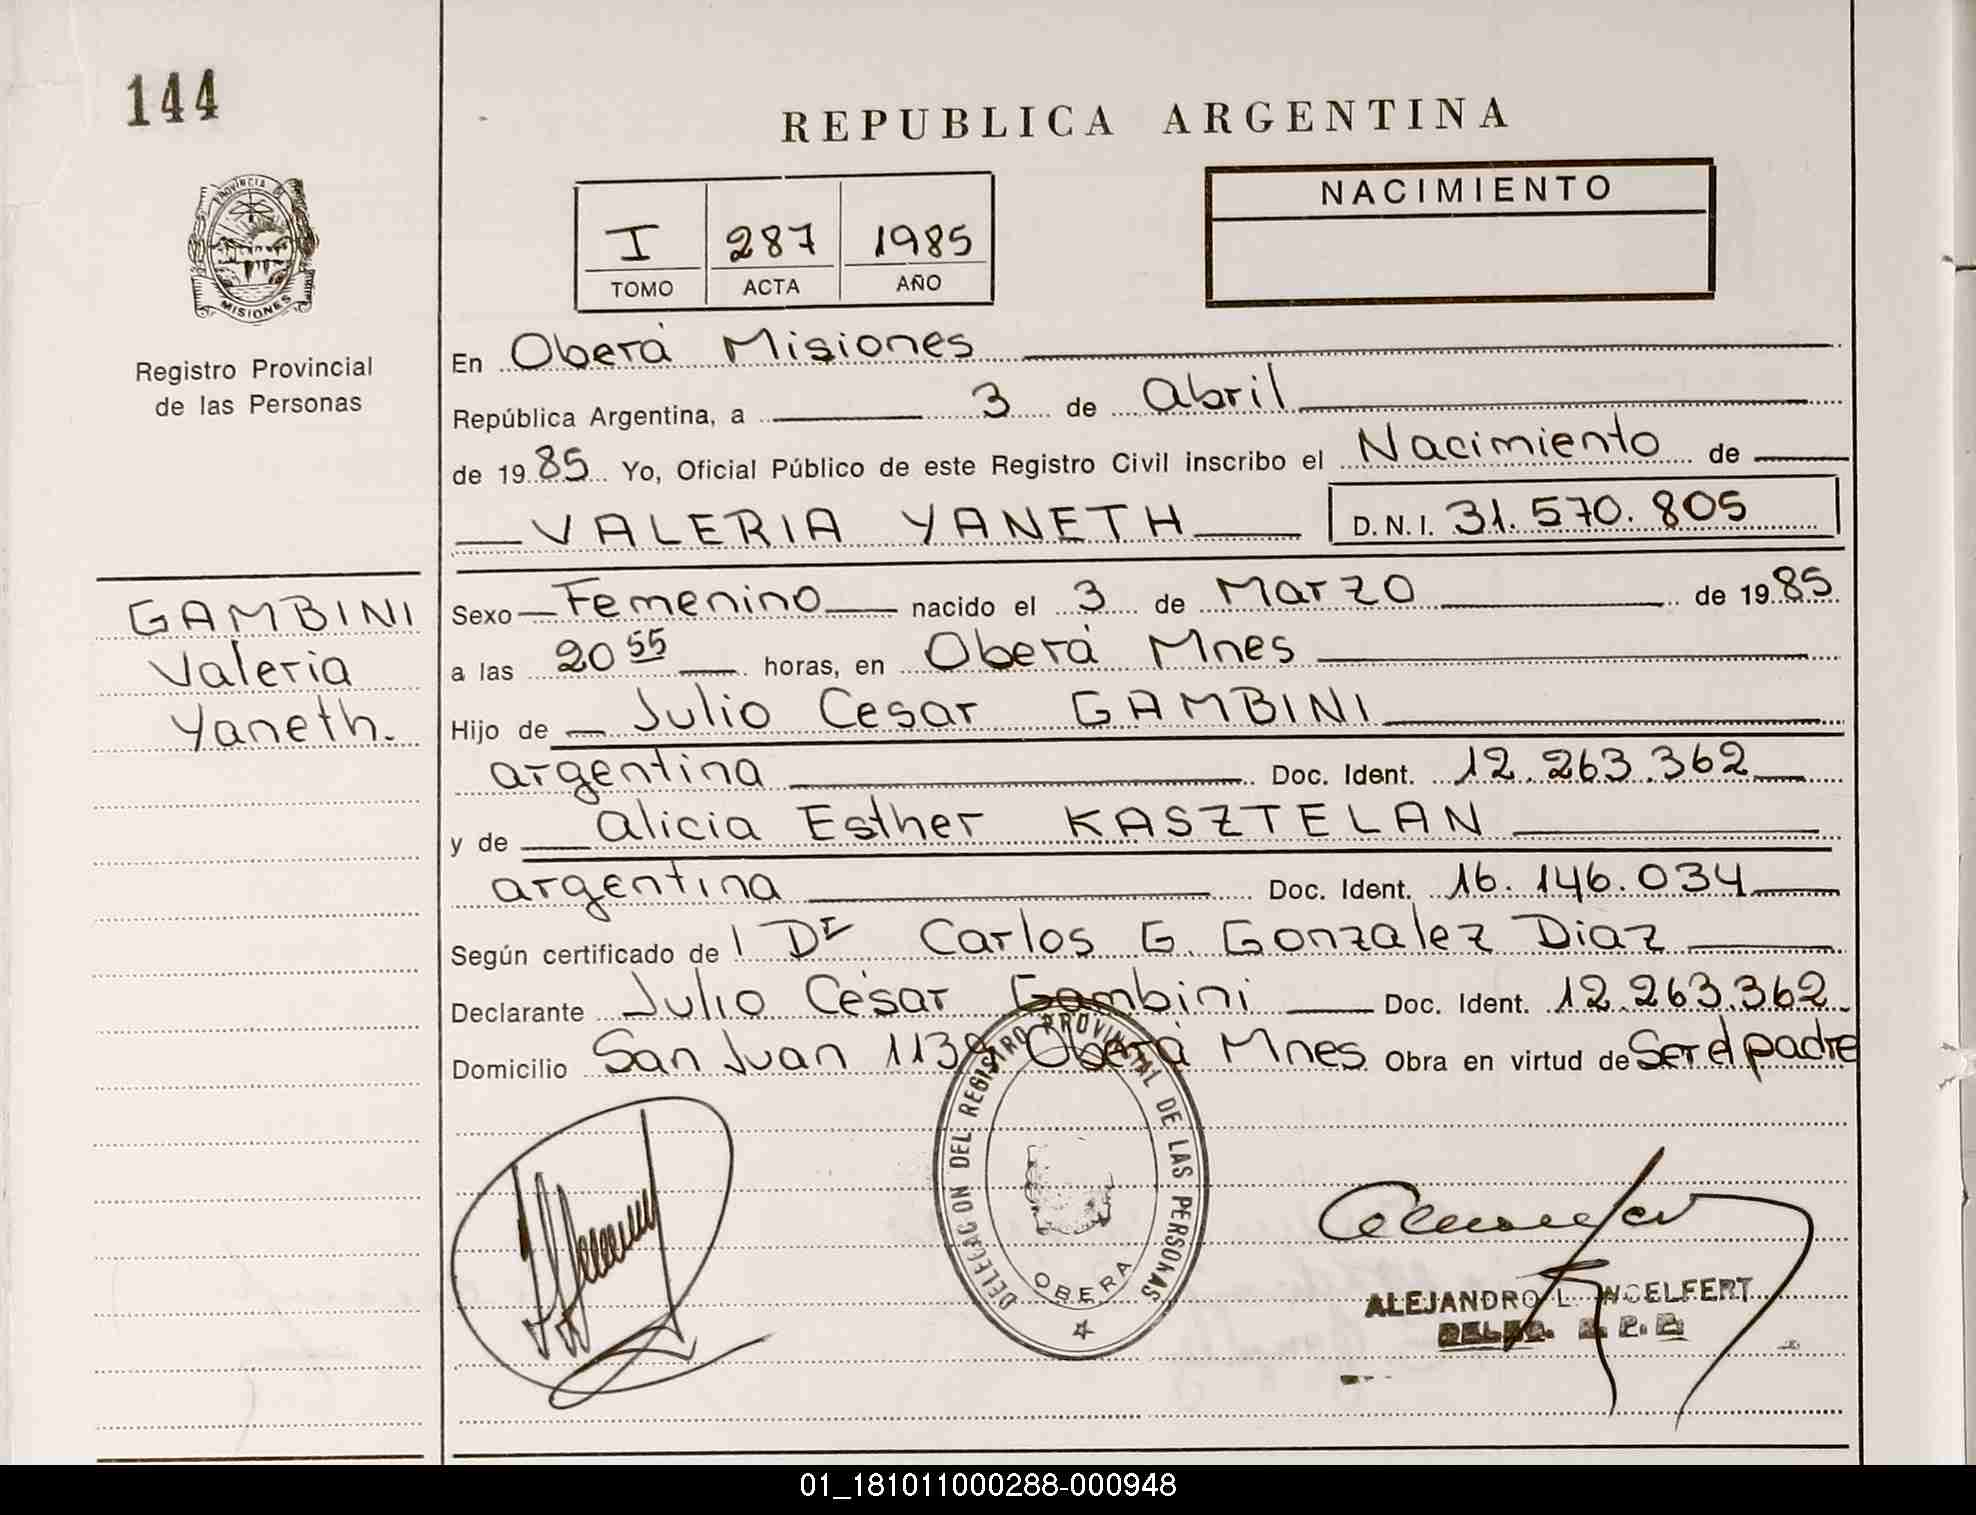 144
REPUBLICA ARGENTINA
PROVINCIA DE
MISIONES
Registro Provincial
de las Personas
I 287 1985
TOMO ACTA AÑO
NACIMIENTO
En Oberá Misiones
República Argentina, a 3 de Abril
de 1985 Yo, Oficial Público de este Registro Civil inscribo el Nacimiento de
VALERIA YANETH D.N.I. 31.570.805
GAMBINI
Valeria
Yaneth.
Sexo Femenino nacido el 3 de Marzo de 1985
a las 20 55 horas, en Oberá Mnes
Hijo de Julio Cesar GAMBINI
argentina Doc. Ident. 12.263.362
y de Alicia Esther KASZTELAN
argentina Doc. Ident. 16.146.034
Según certificado de l Dr Carlos G. Gonzalez Diaz
Declarante Julio César Gambini Doc. Ident. 12.263.362
Domicilio San Juan 1139 Oberá Mnes Obra en virtud de Ser el padre
DELEGACION DEL REGISTRO PROVINCIAL DE LAS PERSONAS
OBERA
ALEJANDRO L.
01_181011000288-000948